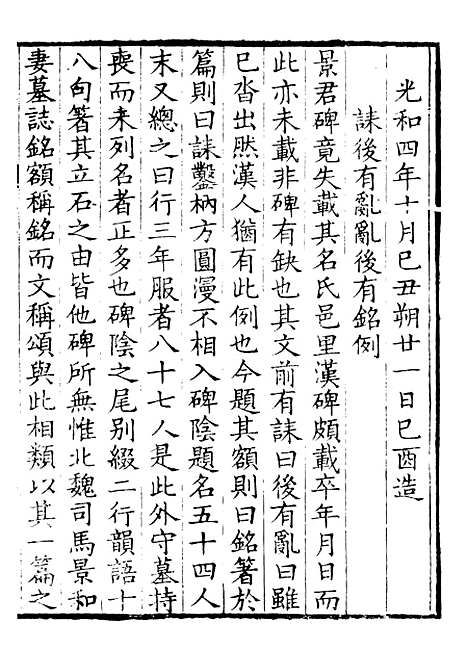 光和四年十月己丑朔廿一日己酉造
誄後有亂亂後有銘例
景君碑竟失載其名氏邑里漢碑頗載卒年月日而
此亦未載非碑有缺也其文前有誄曰後有亂曰雖
已沓出然漢人猶有此例也今題其額則曰銘箸於
篇則曰誄鑿枘方圓漫不相入碑陰題名五十四人
末又總之曰行三年服者八十七人是此外守墓持
喪而未列名者正多也碑陰之尾別綴二行韻語十
八句箸其立石之由皆他碑所無惟北魏司馬景和
妻墓誌銘額稱銘而文稱頌與此相類以其一篇之